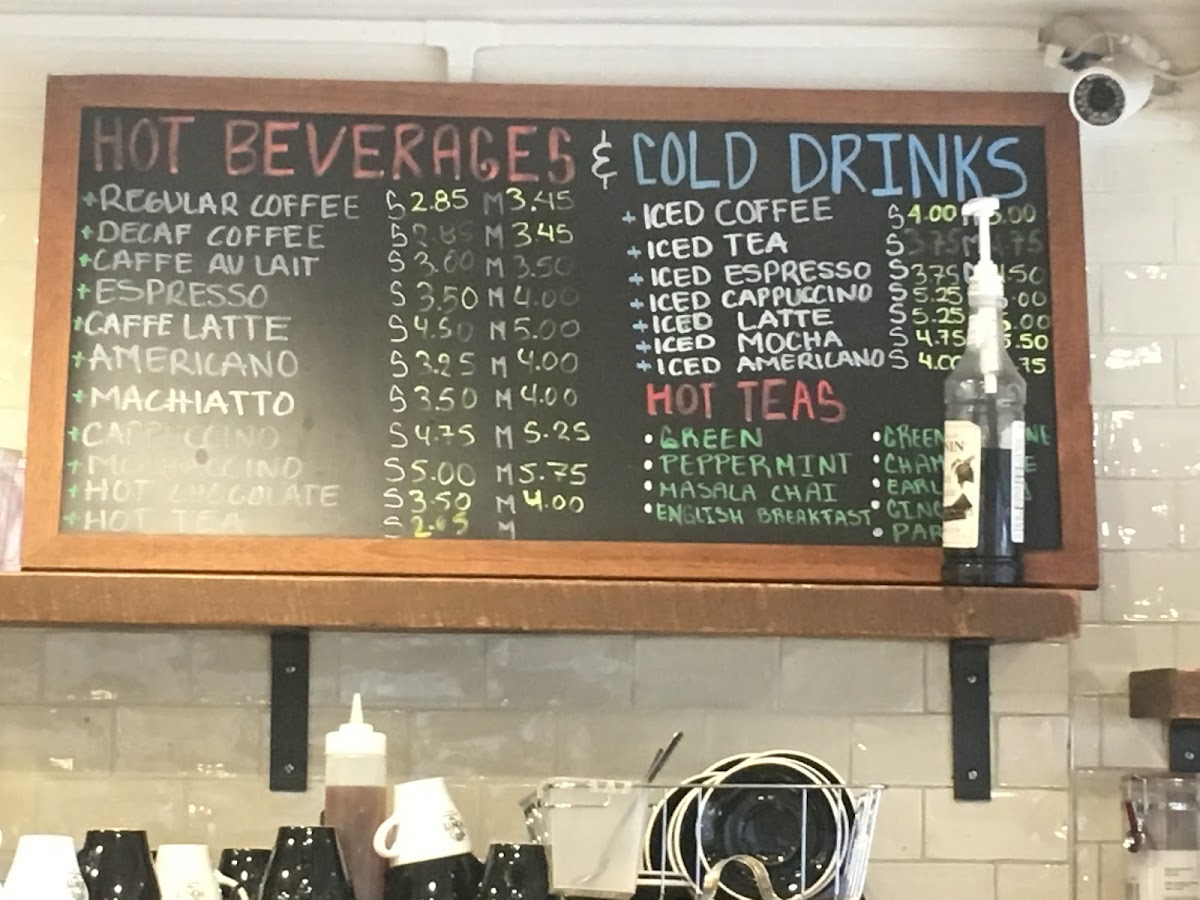 HOT BEVERAGES & COLD DRINKS
+REGULAR COFFEE S 2.85 M 3.45
+DECAF COFFEE S 2.85 M 3.45
+CAFFE AU LAIT S 3.00 M 3.50
+ESPRESSO S 3.50 M 4.00
+CAFFE LATTE S 4.50 M 5.00
+AMERICANO S 3.25 M 4.00
+MACHIATTO S 3.50 M 4.00
+CAPPUCCINO S 4.75 M 5.25
+MOCHACCINO S 5.00 M 5.75
+HOT CHOCOLATE S 3.50 M 4.00
+HOT TEA S M
+ICED COFFEE S 4.00 M 5.00
+ICED TEA S 3.75 M 4.75
+ICED ESPRESSO S 3.75
+ICED CAPPUCCINO S 5.25
+ICED LATTE S 5.25
+ICED MOCHA S 4.75
+ICED AMERICANO S 4.00
HOT TEAS
•GREEN
•PEPPERMINT
•MASALA CHAI
•ENGLISH BREAKFAST
•GREEN